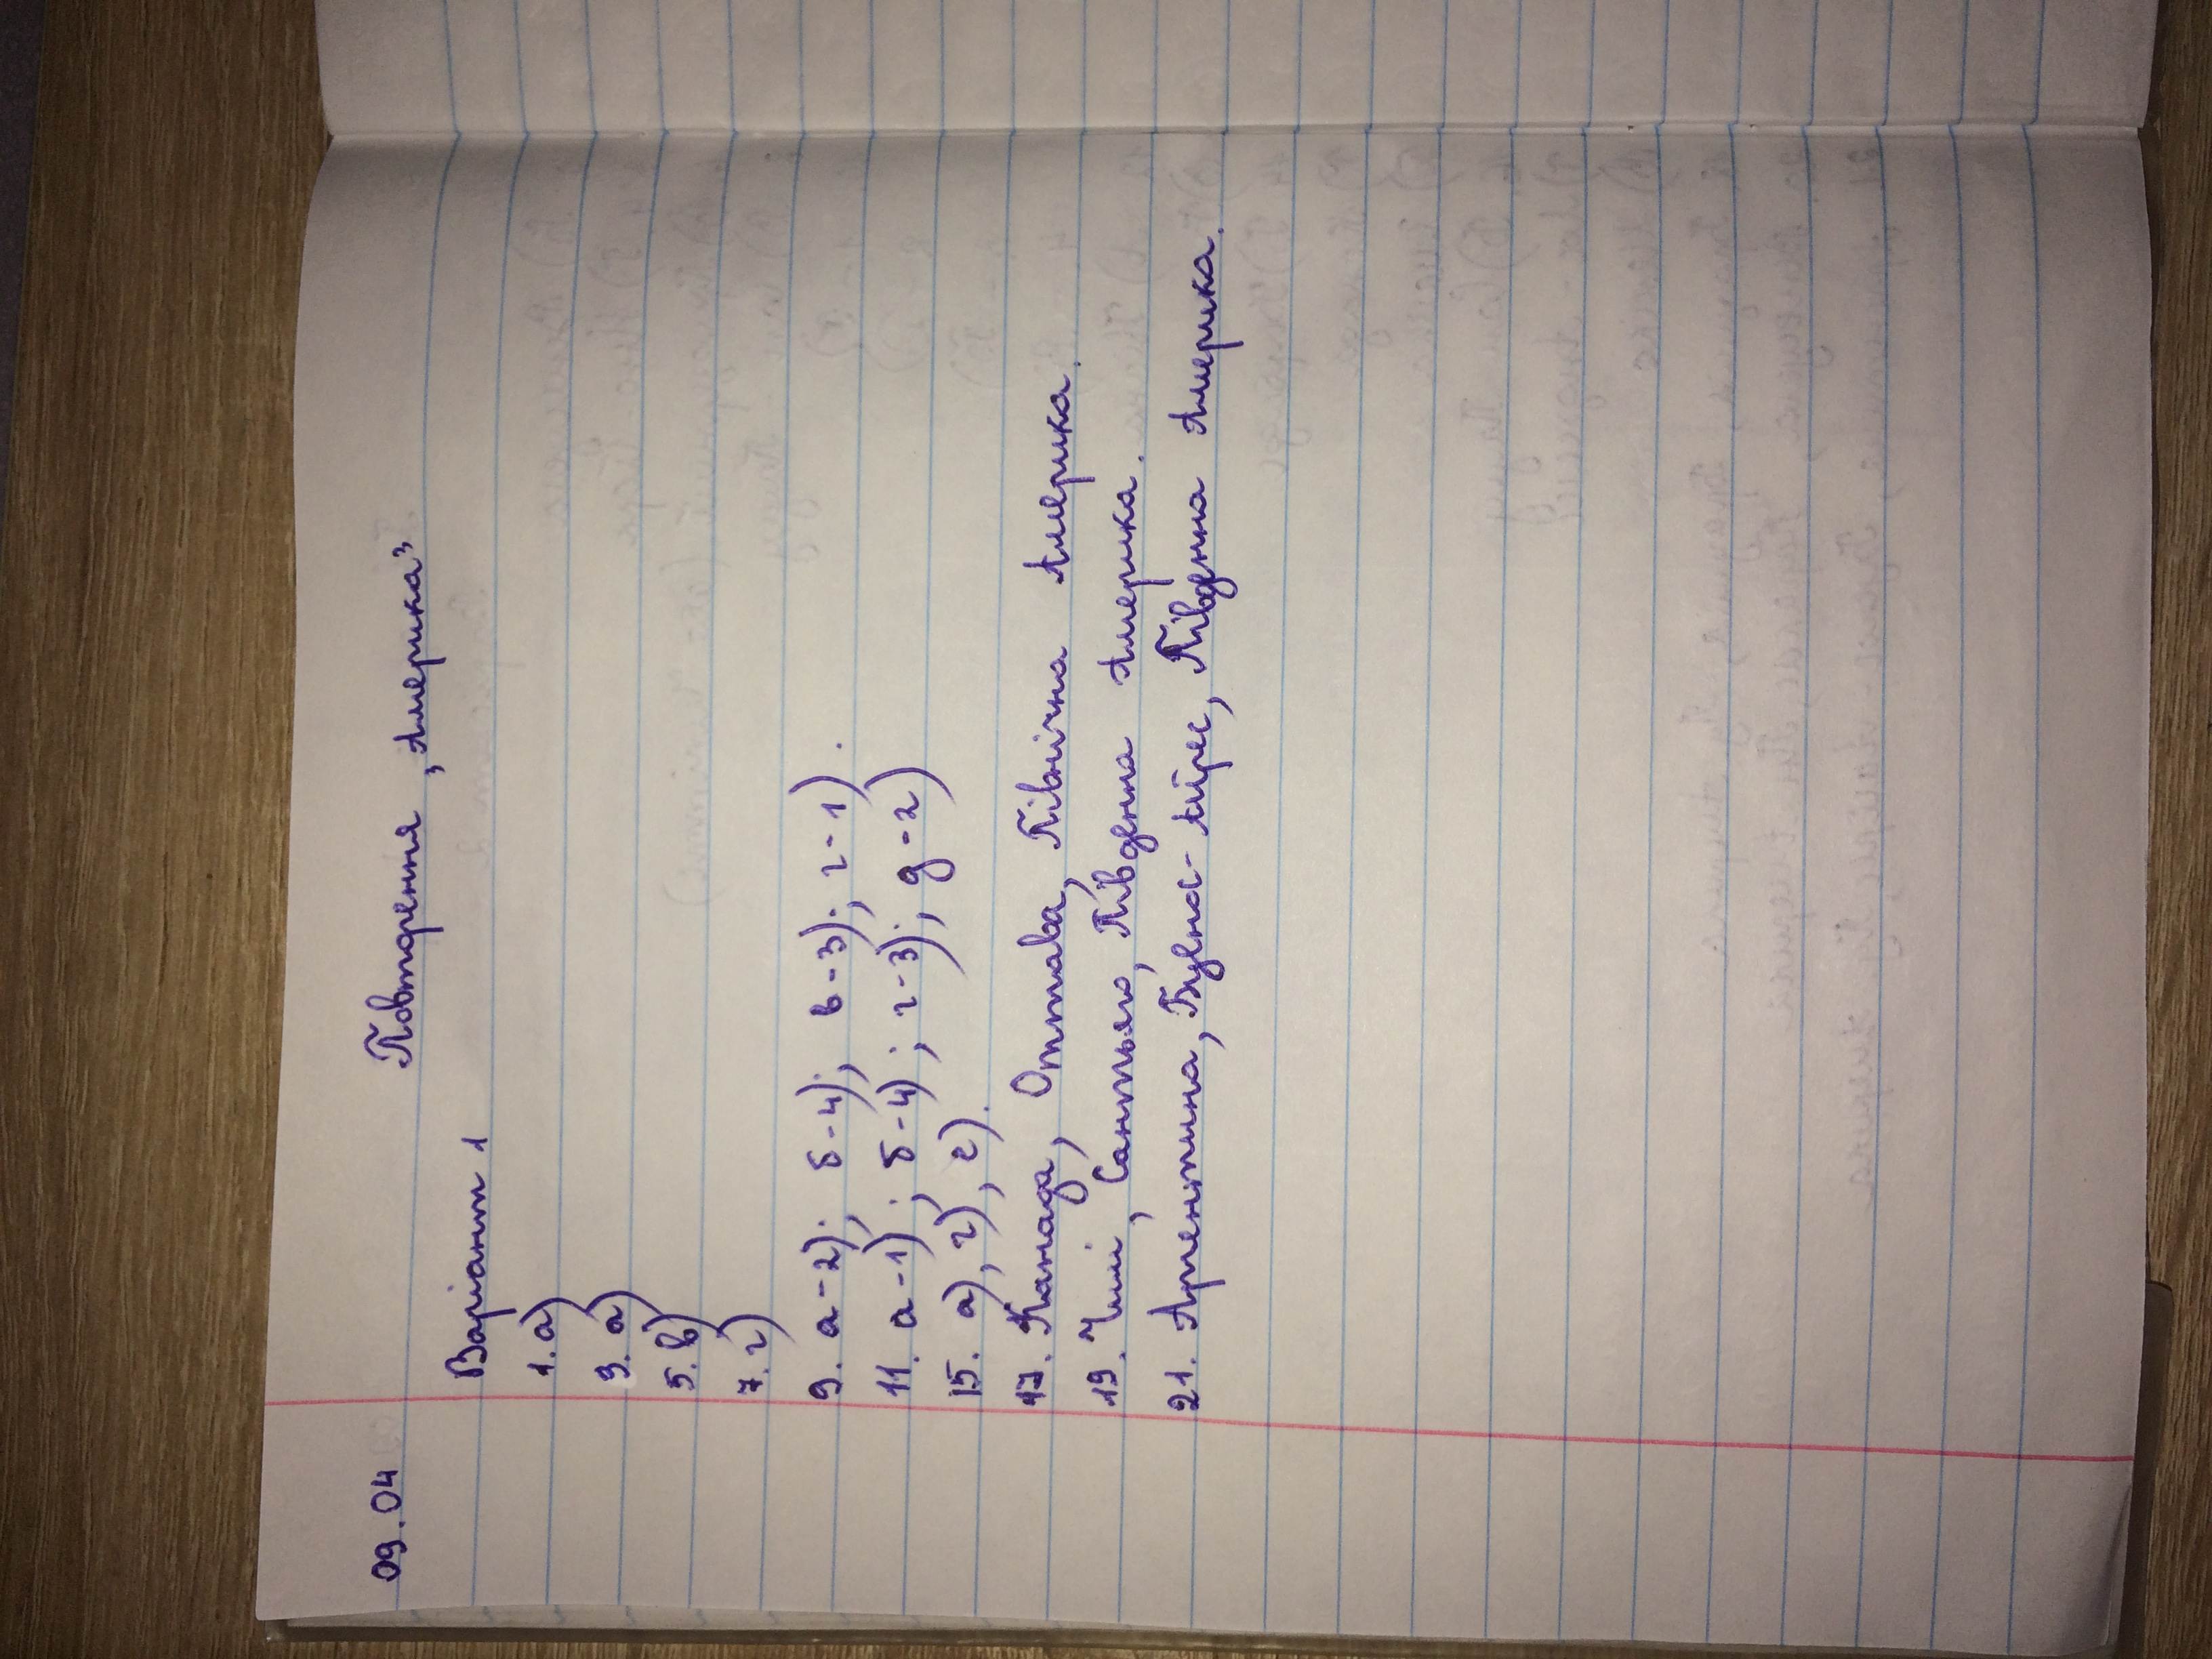 09.04
Повторення „Америка”
Варіант 1
1. а)
3. а)
5. в)
7. г)
9. а-2); б-4); в-3); г-1).
11. а-1); б-4); г-3); д-2)
15. а), г), е).
17. Канада, Оттава, Північна Америка.
19. Чилі, Сантьяго, Південна Америка.
21. Аргентина, Буенос-Айрес, Південна Америка.